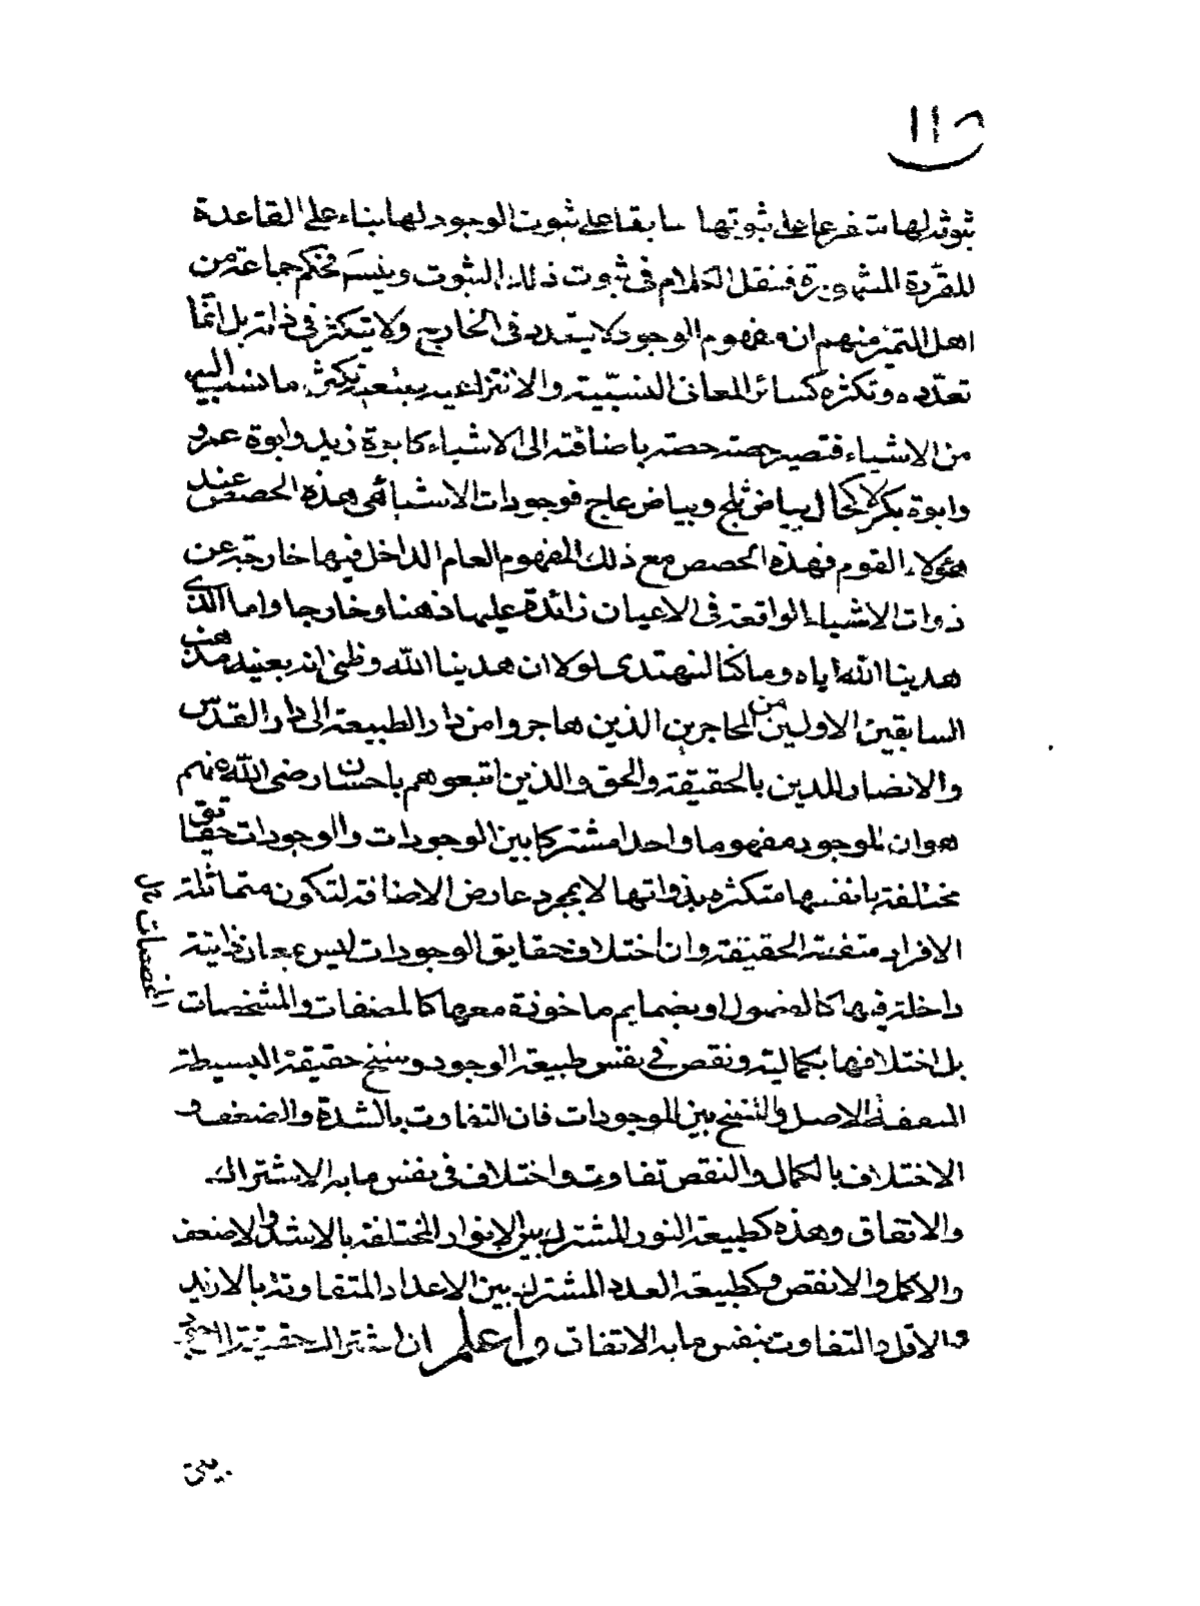 ١١٨
ثبوته لها متفرعا على ثبوتها سابقا على ثبوت الوجود لها بناء على القاعدة
المقررة المشهورة فننقل الكلام في ثبوت ذلك الثبوت و فحكم جماعة من
اهل التميز منهم ان مفهوم الوجود لا يتعدد في الخارج ولا يتكثر في ذاته بل انما
تعدده وتكثره كسائر المعاني النسبية والانتزاعية بتكثر ما نسب اليه
من الاشياء فتصير حصة حصة باضافته الى الاشياء كابوة زيد وابوة عمرو
وابوة بكر بياض ثلج وبياض عاج فوجودات الاشياء هى هذه الحصص عند
هؤلاء القوم فهذه الحصص مع ذلك المفهوم العام الداخل فيها خارجة عن
ذوات الاشياء الواقعة في الاعيان زائدة عليها ذهنا وخارجا واما الذى
هدينا الله اياه وما كنا لنهتدى لولا ان هدينا الله وظني انه بعينه مذهب
السابقين الاولين من المهاجرين الذين هاجروا من دار الطبيعة الى دار القدس
والانصار للدين بالحقيقة والحق والذين اتبعوهم باحسان رضى الله عنهم
هو ان للوجود مفهوما واحدا مشتركا بين الوجودات والوجودات حقايق
مختلفة بانفسها متكثرة بذواتها لا بمجرد عارض الاضافة لتكون متماثلة
الافراد متفقة الحقيقة وان اختلاف حقايق الوجودات ليس بمعان ذاتية
داخلة فيها كالفصول او بضمايم ماخوذة معها كالمصنفات والمشخصات
بل اختلافها بكمالية ونقص في نفس طبيعة الوجود وسنخ حقيقة البسيطة
المتفقة الاصل والسنخ بين الموجودات فان التفاوت بالشدة والضعف و
الاختلاف بالكمال والنقص تفاوت واختلاف في نفس ما به الاشتراك
والاتفاق وهذه كطبيعة النور المشترك بين الانوار المختلفة بالاشد والاضعف
والاكمل والانقص وكطبيعة العدد المشترك بين الاعداد المتفاوتة بالازيد
والاقل والتفاوت بنفس ما به الاتفاق واعلم ان اشتراك حقيقة الوجود